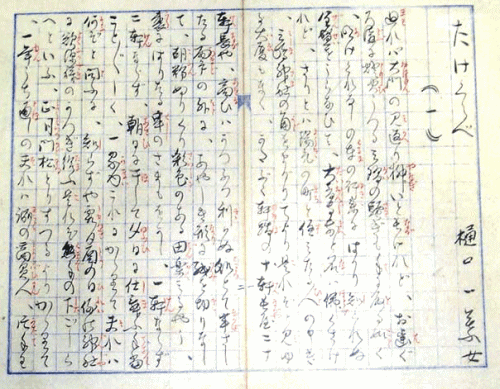 たけくらべ
樋口一葉女
(一)
廻れば大門の見返り柳いと長けれど、お歯ぐ
ろ溝に燈火うつる三階の騒ぎも手に取る如く
明けくれなしの車の行来にはかり知られぬ
全盛をうらなひて、大音寺前と名は佛くさけ
れど、さりとは陽氣の町と住みたる人の申き
三嶋神社の角をまがりてより是れぞと見ゆ
る大厦もなく、かたぶく軒端の十軒長屋二十
軒長や、商ひはかつふつ利かぬ処とて半さし
たる雨戸の外に、あやしき形に紙を切りなし
て、胡粉ぬりくり彩色のある田楽みるやう、
裏にはりたる串のさまもをかし、一軒ならず
二軒ならず、朝日に干して夕日に仕舞ふ手当
ことごとしく、一家内これにかゝりて夫れは
何ぞと問ふに、知らずや霜月酉の日例の神社
に欲深様のかつぎ給ふ是れぞ熊手の下ごしら
へといふ、正月門松とりすつるよりかゝりて
一年うち通しの夫れは誠の商賣人、片手わざにも